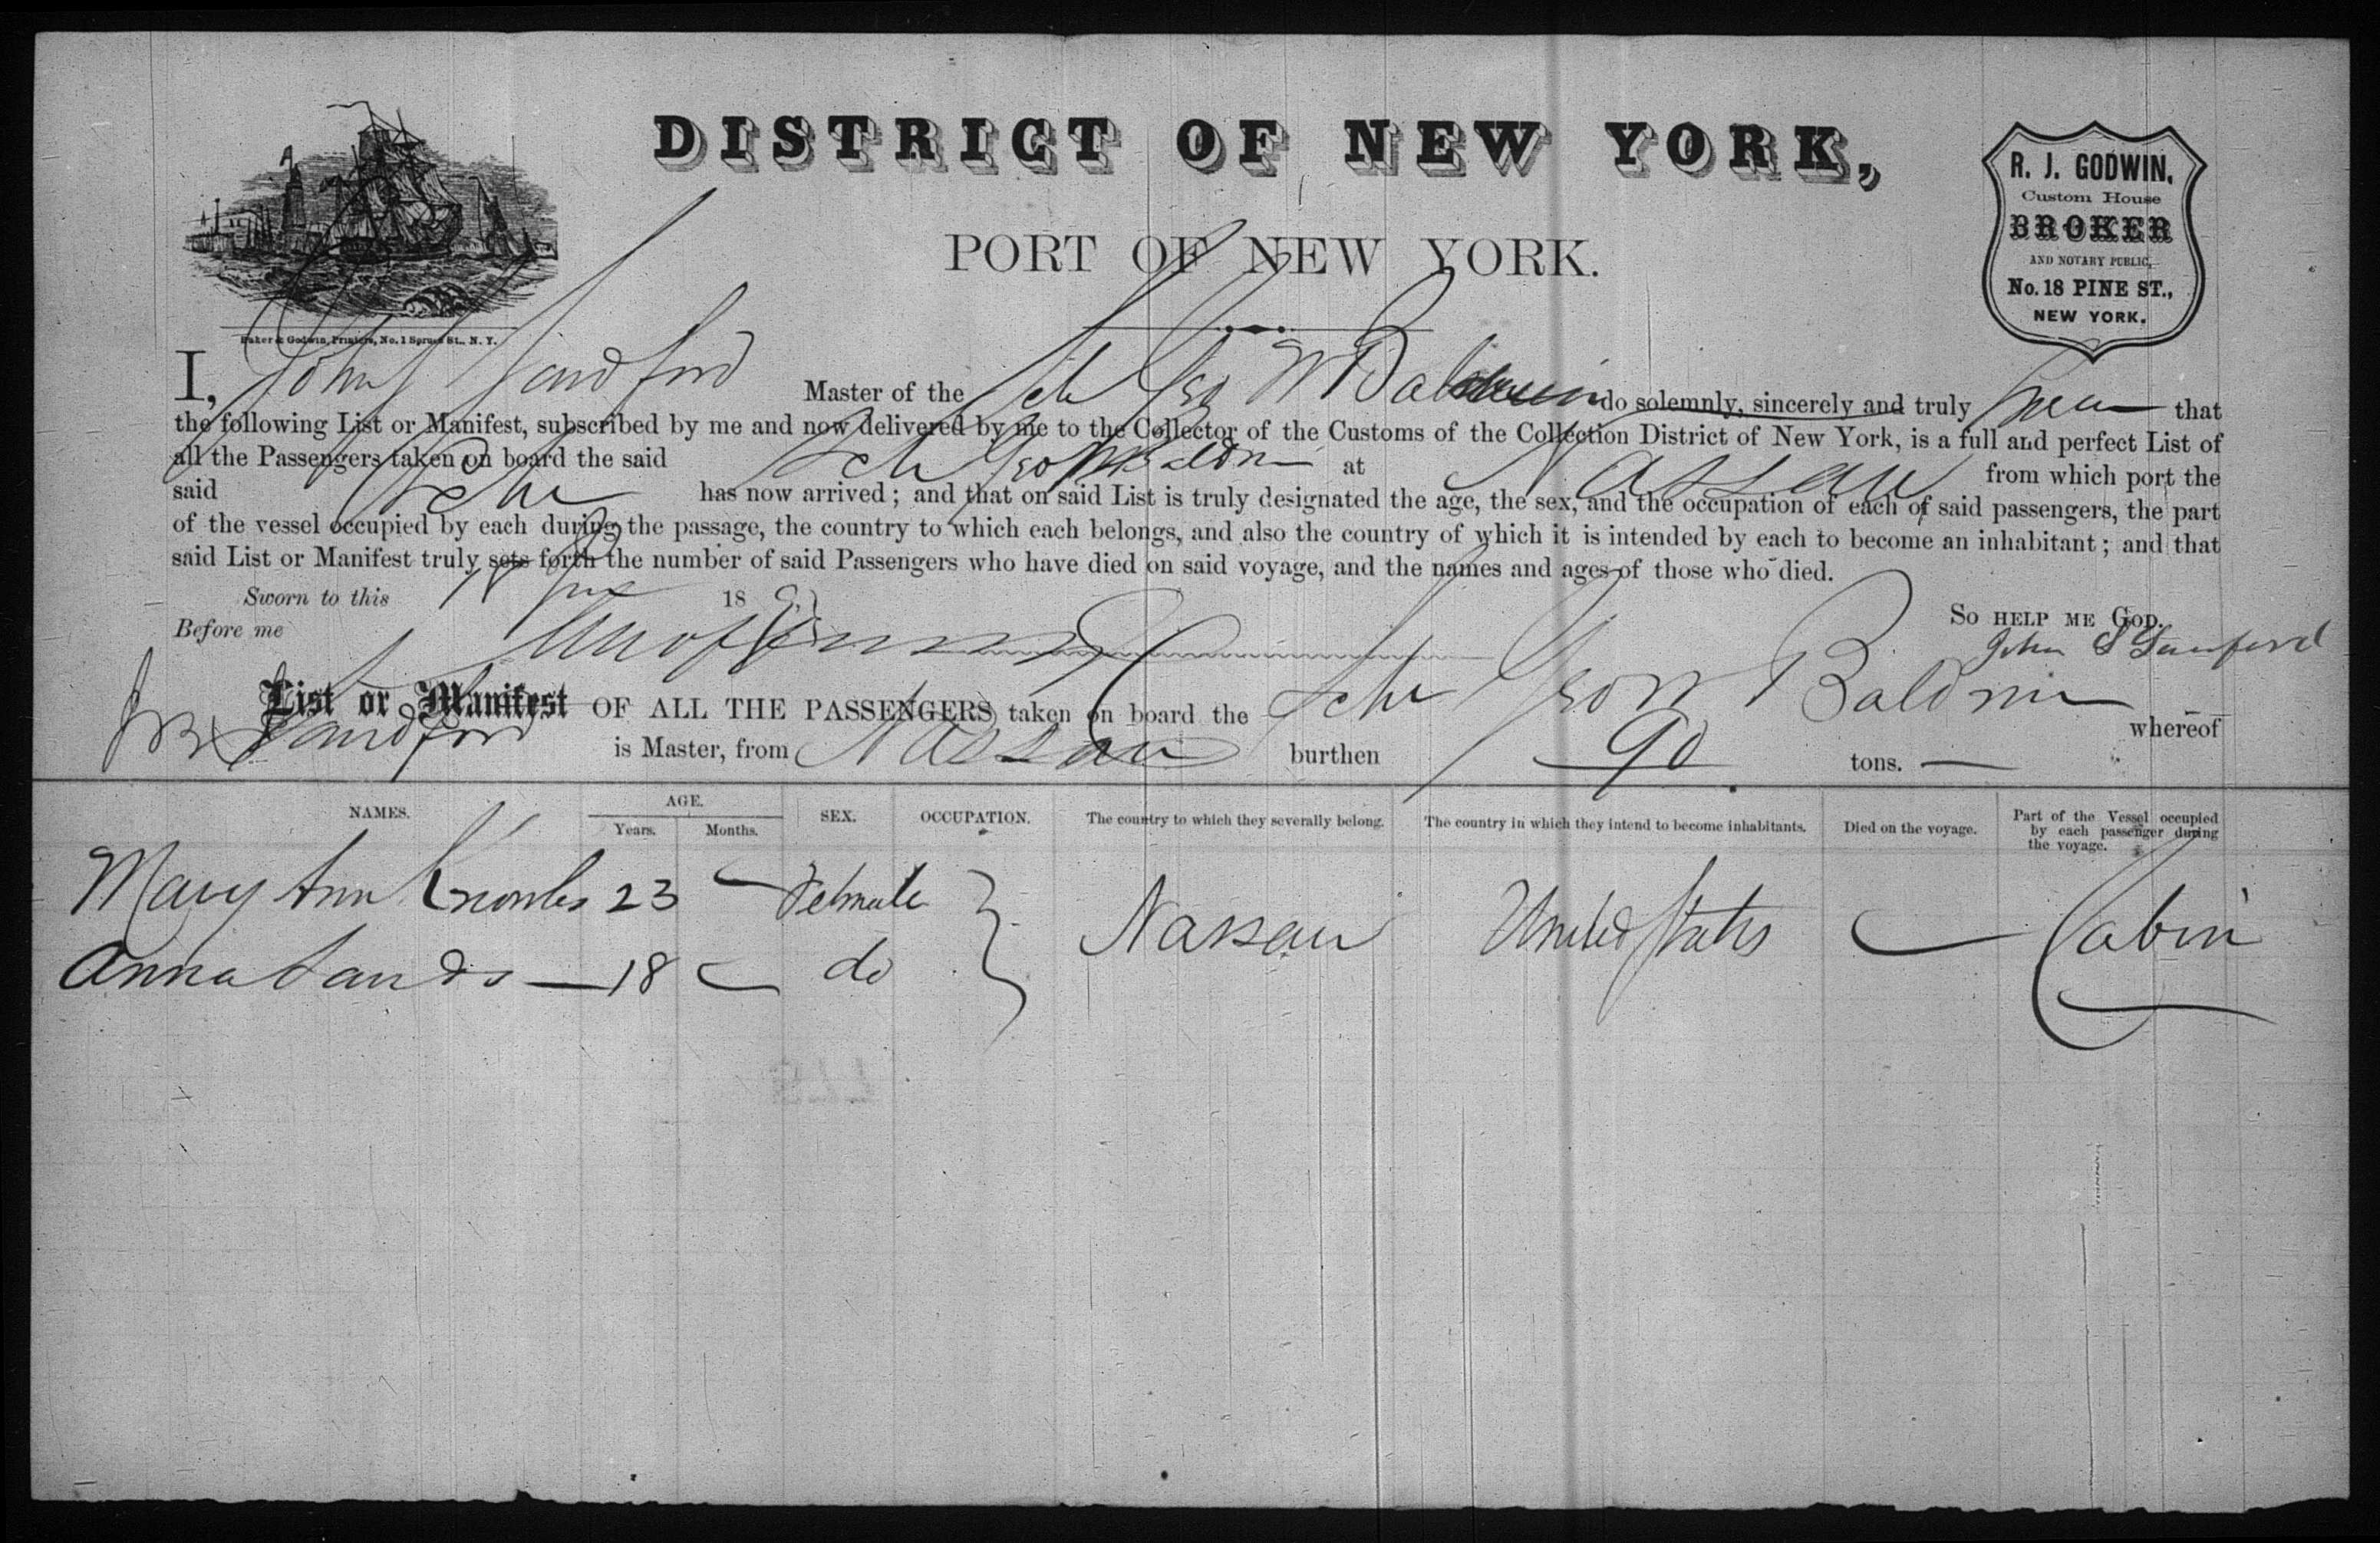 DISTRICT OF NEW YORK,
PORT OF NEW YORK.
R. J. GODWIN,
Custom House
BROKER
AND NOTARY PUBLIC,
No. 18 PINE ST.,
NEW YORK.
Baker & Godwin, Printers, No. 1 Spruce St., N. Y.
I, John S Sandford Master of the Sch Geo W Baldwin do solemnly, sincerely and truly swear that
the following List or Manifest, subscribed by me and now delivered by me to the Collector of the Customs of the Collection District of New York, is a full and perfect List of
all the Passengers taken on board the said Schr Geo W Baldwin at Nassau from which port the
said Schr has now arrived; and that on said List is truly designated the age, the sex, and the occupation of each of said passengers, the part
of the vessel occupied by each during the passage, the country to which each belongs, and also the country of which it is intended by each to become an inhabitant; and that
said List or Manifest truly sets forth the number of said Passengers who have died on said voyage, and the names and ages of those who died.
Sworn to this 18
So HELP ME GOD.
Before me
John S Sanford
List or Manifest OF ALL THE PASSENGERS taken on board the Schr Geo W Baldwin whereof
Sandford is Master, from Nassau burthen 90 tons.
NAMES. AGE. SEX. OCCUPATION. The country to which they severally belong. The country in which they intend to become inhabitants. Died on the voyage. Part of the Vessel occupied by each passenger during the voyage.
Years. Months.
Mary Ann Knowles 23 — Female
Nassau United States — Cabin
Anna Sands — 18 — do